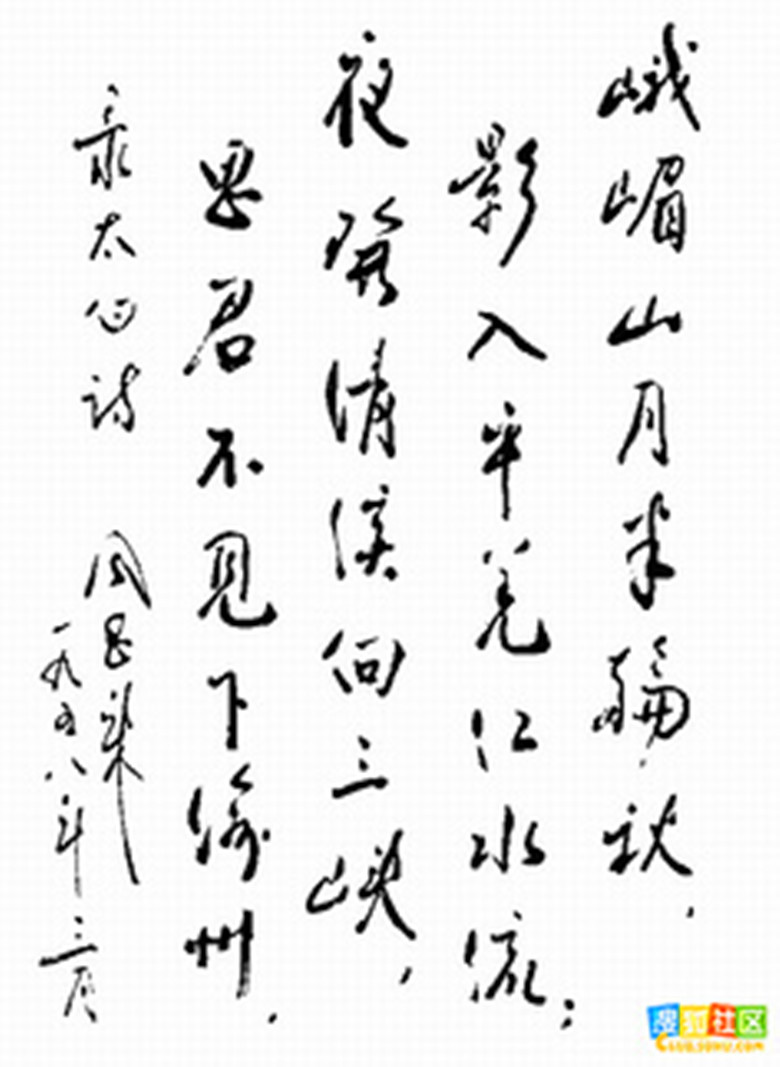 峨嵋山月半輪秋，
影入平羌江水流；
夜發清溪向三峡，
思君不見下渝州．
录太白诗 周恩来
一九五八年三月
搜狐社区
CLUB.SOHU.COM